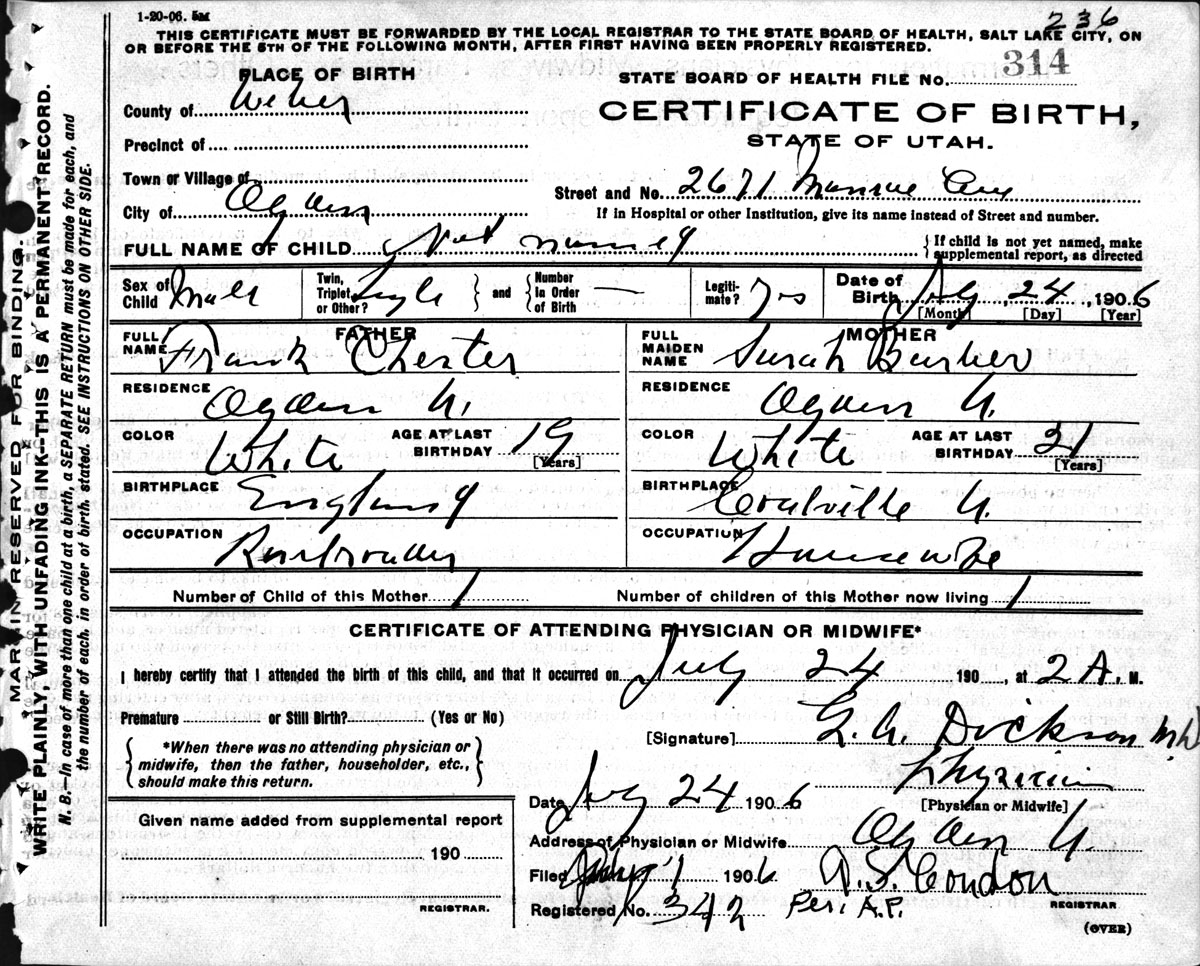 1-20-06. 5M
236
THIS CERTIFICATE MUST BE FORWARDED BY THE LOCAL REGISTRAR TO THE STATE BOARD OF HEALTH, SALT LAKE CITY, ON
OR BEFORE THE 5TH OF THE FOLLOWING MONTH, AFTER FIRST HAVING BEEN PROPERLY REGISTERED.
MARGIN RESERVED FOR BINDING.
WRITE PLAINLY, WITH UNFADING INK—THIS IS A PERMANENT RECORD.
N. B.—In case of more than one child at a birth, a SEPARATE RETURN must be made for each, and
the number of each, in order of birth, stated. SEE INSTRUCTIONS ON OTHER SIDE.
PLACE OF BIRTH
STATE BOARD OF HEALTH FILE No. 314
County of Weber
CERTIFICATE OF BIRTH,
STATE OF UTAH.
Precinct of
Town or Village of
Street and No. 2671 Monroe Ave
City of Ogden
If in Hospital or other Institution, give its name instead of Street and number.
FULL NAME OF CHILD Not named
{ If child is not yet named, make
supplemental report, as directed
Sex of Child Male
Twin, Triplet or Other? Single } and { Number in Order of Birth —
Legiti- mate? Yes
Date of Birth July, 24, 1906
[Month] [Day] [Year]
FATHER
FULL NAME Frank Chester
RESIDENCE Ogden U.
COLOR White AGE AT LAST BIRTHDAY 19 [Years]
BIRTHPLACE England
OCCUPATION
MOTHER
FULL MAIDEN NAME Sarah Barber
RESIDENCE Ogden U.
COLOR White AGE AT LAST BIRTHDAY 21 [Years]
BIRTHPLACE Coalville U.
OCCUPATION Housewife
Number of Child of this Mother 1 Number of children of this Mother now living 1
CERTIFICATE OF ATTENDING PHYSICIAN OR MIDWIFE*
I hereby certify that I attended the birth of this child, and that it occurred on July 24 190, at 2 A. M.
Premature or Still Birth? (Yes or No)
[Signature] Dickson MD
{ *When there was no attending physician or
midwife, then the father, householder, etc.,
should make this return. }
Physician
[Physician or Midwife]
Date July 24 1906
Address of Physician or Midwife Ogden U.
Given name added from supplemental report
190
REGISTRAR.
Filed 1 1906 Condon
Registered No. 342 Per. A.P. REGISTRAR
(OVER)